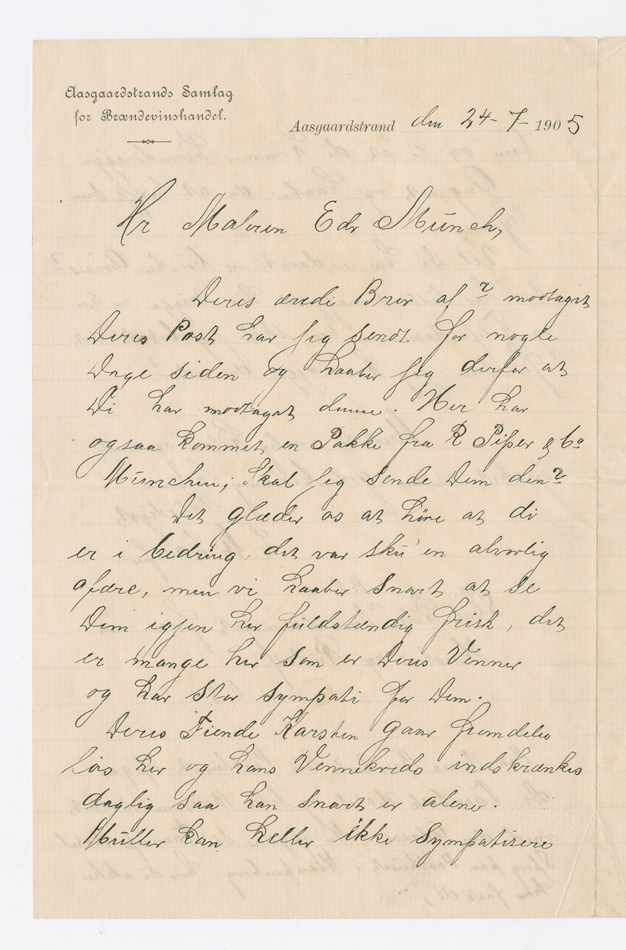 Aasgaardstrands Samlag
for Brændevinshandel.
Aasgaardstrand den 24-7-1905
Hr Maleren Edv Münch,
Deres ærede Brev af ? modtaget
Deres Post har jeg sendt for nogle
Dage siden og haaber jeg derfor at
Di har modtaget denne. Her har
ogsaa kommet en Pakke fra R Piper & Co
München; skal jeg sende Dem den?
Det glæder os at høre at di
er i bedring, det var sku' en alvorlig
afære, men vi haaber snart at se
Dem igjen her fuldstændig frisk, det
er mange her som er Deres Venner
og har stor sympati for Dem.
Deres Fiende Karsten gaar fremdeles
løs her og hans Vennekreds indskrænkes
daglig saa han snart er alene.
Müller kan heller ikke sympatisere